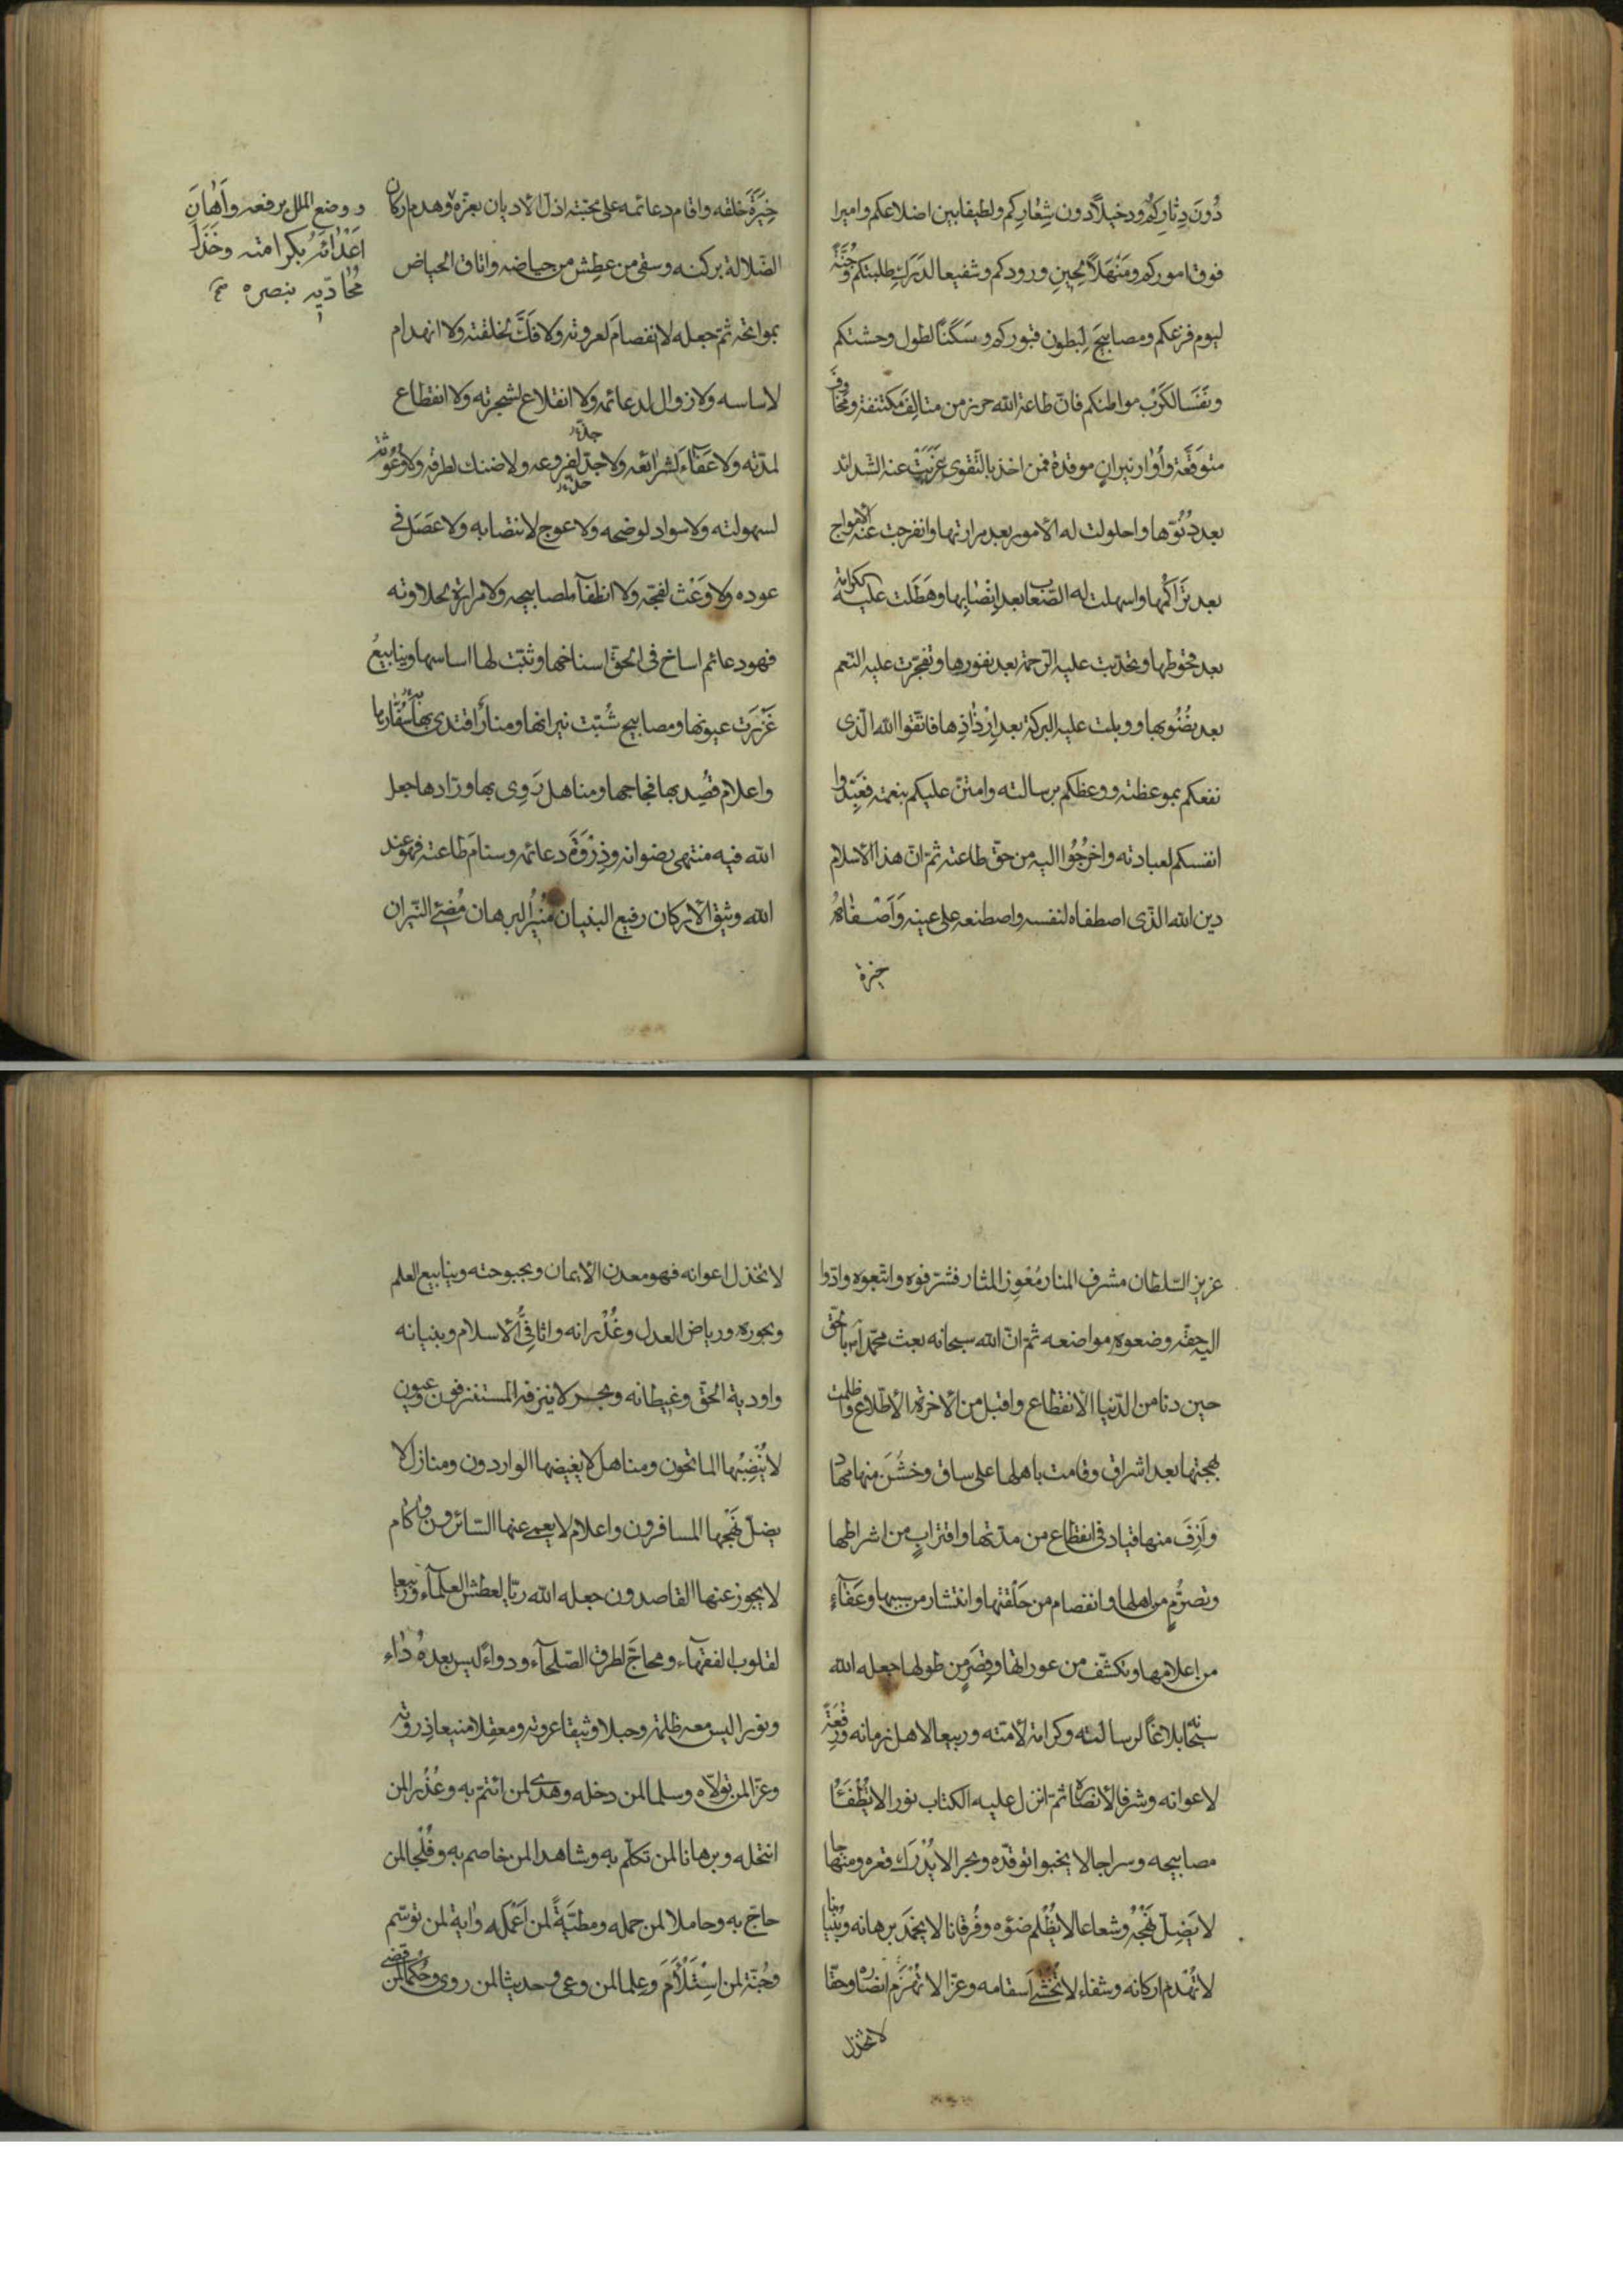 دُونَ دِثارِكُم ودخيلاً دون شِعَارِكِم ولطيفا بين اضلاعكم واميرا
فوق اموركم ومَنْهَلاً لِحِينِ ورودكم وشفيعا لدَرَكِ طلبتكم وجُنَّةً
ليوم فزعكم ومصابيحَ لِبُطون قبوركم وسَكَناً لطول وحشتكم
ونَفَسا لكَرْبِ مواطنكم فانّ طاعة الله حرز من متالِفَ مكتنفة ومخاوفَ
متوقَّعة وأُوار نيرانٍ موقدة فمن اخذ بالتقوى عَزَبَتْ عنه الشدائد
بعد دُنُوّها واحلولت له الأمور بعد مرارتها وانفرجت عنه الأمواج
بعد تَرَاكُمها واسهلت له الصّعاب بعد اِنْصَابِها وهَطَلت عليه الكرامة
بعد قحوطها وتحدّبت عليه الرّحمة بعد نفورها وتفجّرت عليه النّعم
بعد نُضُوبها ووبلت عليه البركة بعد اِرْذَاذِها فاتّقوا الله الّذى
نفعكم بموعظته ووعظكم برسالته وامتنّ عليكم بنعمته فعَبِّدوا
انفسكم لعبادته واخرُجُوا اليه من حقّ طاعته ثمّ انّ هذا الأسلام
دين الله الذّى اصطفاه لنفسه واصطنعه على عينه وَاَصْفاهُ
خيرة
خِيَرَةَ خلقه واقام دعائمه على محبّته اذلّ الأديان بعزّه وهدم اركان
ووضع الملل برفعه واَهَانَ
اَعْدَائَهُ بكرامته وخَذَلَ
مُحَادّيه بنصره صح
الضّلالة بركنه وسقى من عطِش من حياضه واتاق الحياض
بمواتحه ثمّ جعله لا انفصامَ لعروته ولا فَكَّ لحلقته ولا انهدام
لاساسه ولا زوال لدعائمه ولا انقلاع لشجرته ولا انقطاع
لمدّته ولا عَفَآءَ لشرائعه ولا جذّ لفروعه ولا ضنك لطرقه ولا وُعُوثة
لسهولته ولا سواد لوضحه ولا عوج لانتصابه ولا عَصَل فى
عوده ولا وَعَث لفجّه ولا انطفآء لمصابيحه ولا مرارة لحلاوته
فهو دعائم اساخ فى الحقّ اسناخها وثبّت لها اساسها وينابيعُ
غَزُرَت عيونها ومصابيح شُبّت نيرانها ومنارٌ اقتدى بها سُفّارها
واعلام قُصِد بها فجاجها ومناهل رَوِى بها ورّادها جعل
الله فيه منتهى رضوانه وذِرْوَةَ دعائمه وسنامَ طاعته فهو عند
الله وثيق الأركان رفيع البنيان مُنيرُ البرهان مُضىء النّيران
عزيز السّلطان مشرف المنار مُعْوِز المثار فشرّفوه واتّبعوه وادّوا
اليه حقّه وضعوه مواضعه ثمّ انّ الله سبحانه بعث محمّداً بالحقّ
حين دنا من الدّنيا الانقطاع واقبل من الأخرة الأطّلاع واظلمت
بهجتها بعد اشراق وقامت باهلها على ساق وخشُنَ منها مهاد
وأَزِفَ منها قياد فى انقطاع من مدّتها واقترابٍ من اشراطها
وتصرُّمٍ من اهلها وانفصام من حَلْقتها وانتشار من سببها وعَفَآءٍ
من اعلامها وتكشّف من عوراتها وقِصَرٍ من طولها جعله الله
سبحانه بلاغاً لرسالته وكرامة لأمّته وربيعا لاهل زمانه ورِفْعَةً
لاعوانه وشرفا لأنصاره ثمّ انزل عليه الكتاب نورا لا تُطْفَأُ
مصابيحه وسراجا لا يخبو توقّده وبحرا لا يُدْرَك قعره ومنهاجا
لا يَضِلّ نَهْجُهُ وشعاعا لا يُظْلم ضوؤه وفُرقانا لا يخمَد برهانه وبُنْيانا
لا تُهْدَم اركانه وشفاء لا تُخْشى اَسقامه وعزّا لا تُهْزَم انصاره وحقّا
لا تخذل
لا تخذل اعوانه فهو معدن الأيمان وبحبوحته وينابيع العلم
وبحوره ورياض العدل وغُدْرانه واثافىُّ الأسلام وبنيانه
واودية الحقّ وغيطانه وبحر لا ينزفه المستنزفون وعيون
لا يُنْضِبُها الماتحون ومناهل لا يغيضها الواردون ومنازل لا
يضلّ نَهْجَها المسافرون واعلام لا يعمى عنها السّائرون واكام
لا يجوز عنها القاصدون جعله الله ريّا لعطش العلمآء وربيعا
لقلوب الفقهآء ومحاجّ لطرق الصّلحآء ودواءً ليس بعدهُ داء
ونورا ليس معه ظلمة وحبلا وثيقا عروته ومعقلا منيعا ذِروته
وعزّا لمن تولّاه وسلما لمن دخله وهدى لمن ائتمّ به وعُذْرا لمن
انتحله وبرهانا لمن تكلّم به وشاهدا لمن خاصم به وفُلْجا لمن
حاجّ به وحاملا لمن حمله ومطيّةً لمن اَعْمَله وآية لمن توسّم
وجُنّة لمن اِسْتَلْأَمَ وعِلما لمن وعى وحديثا لمن روى وحُكْما لمن قضى